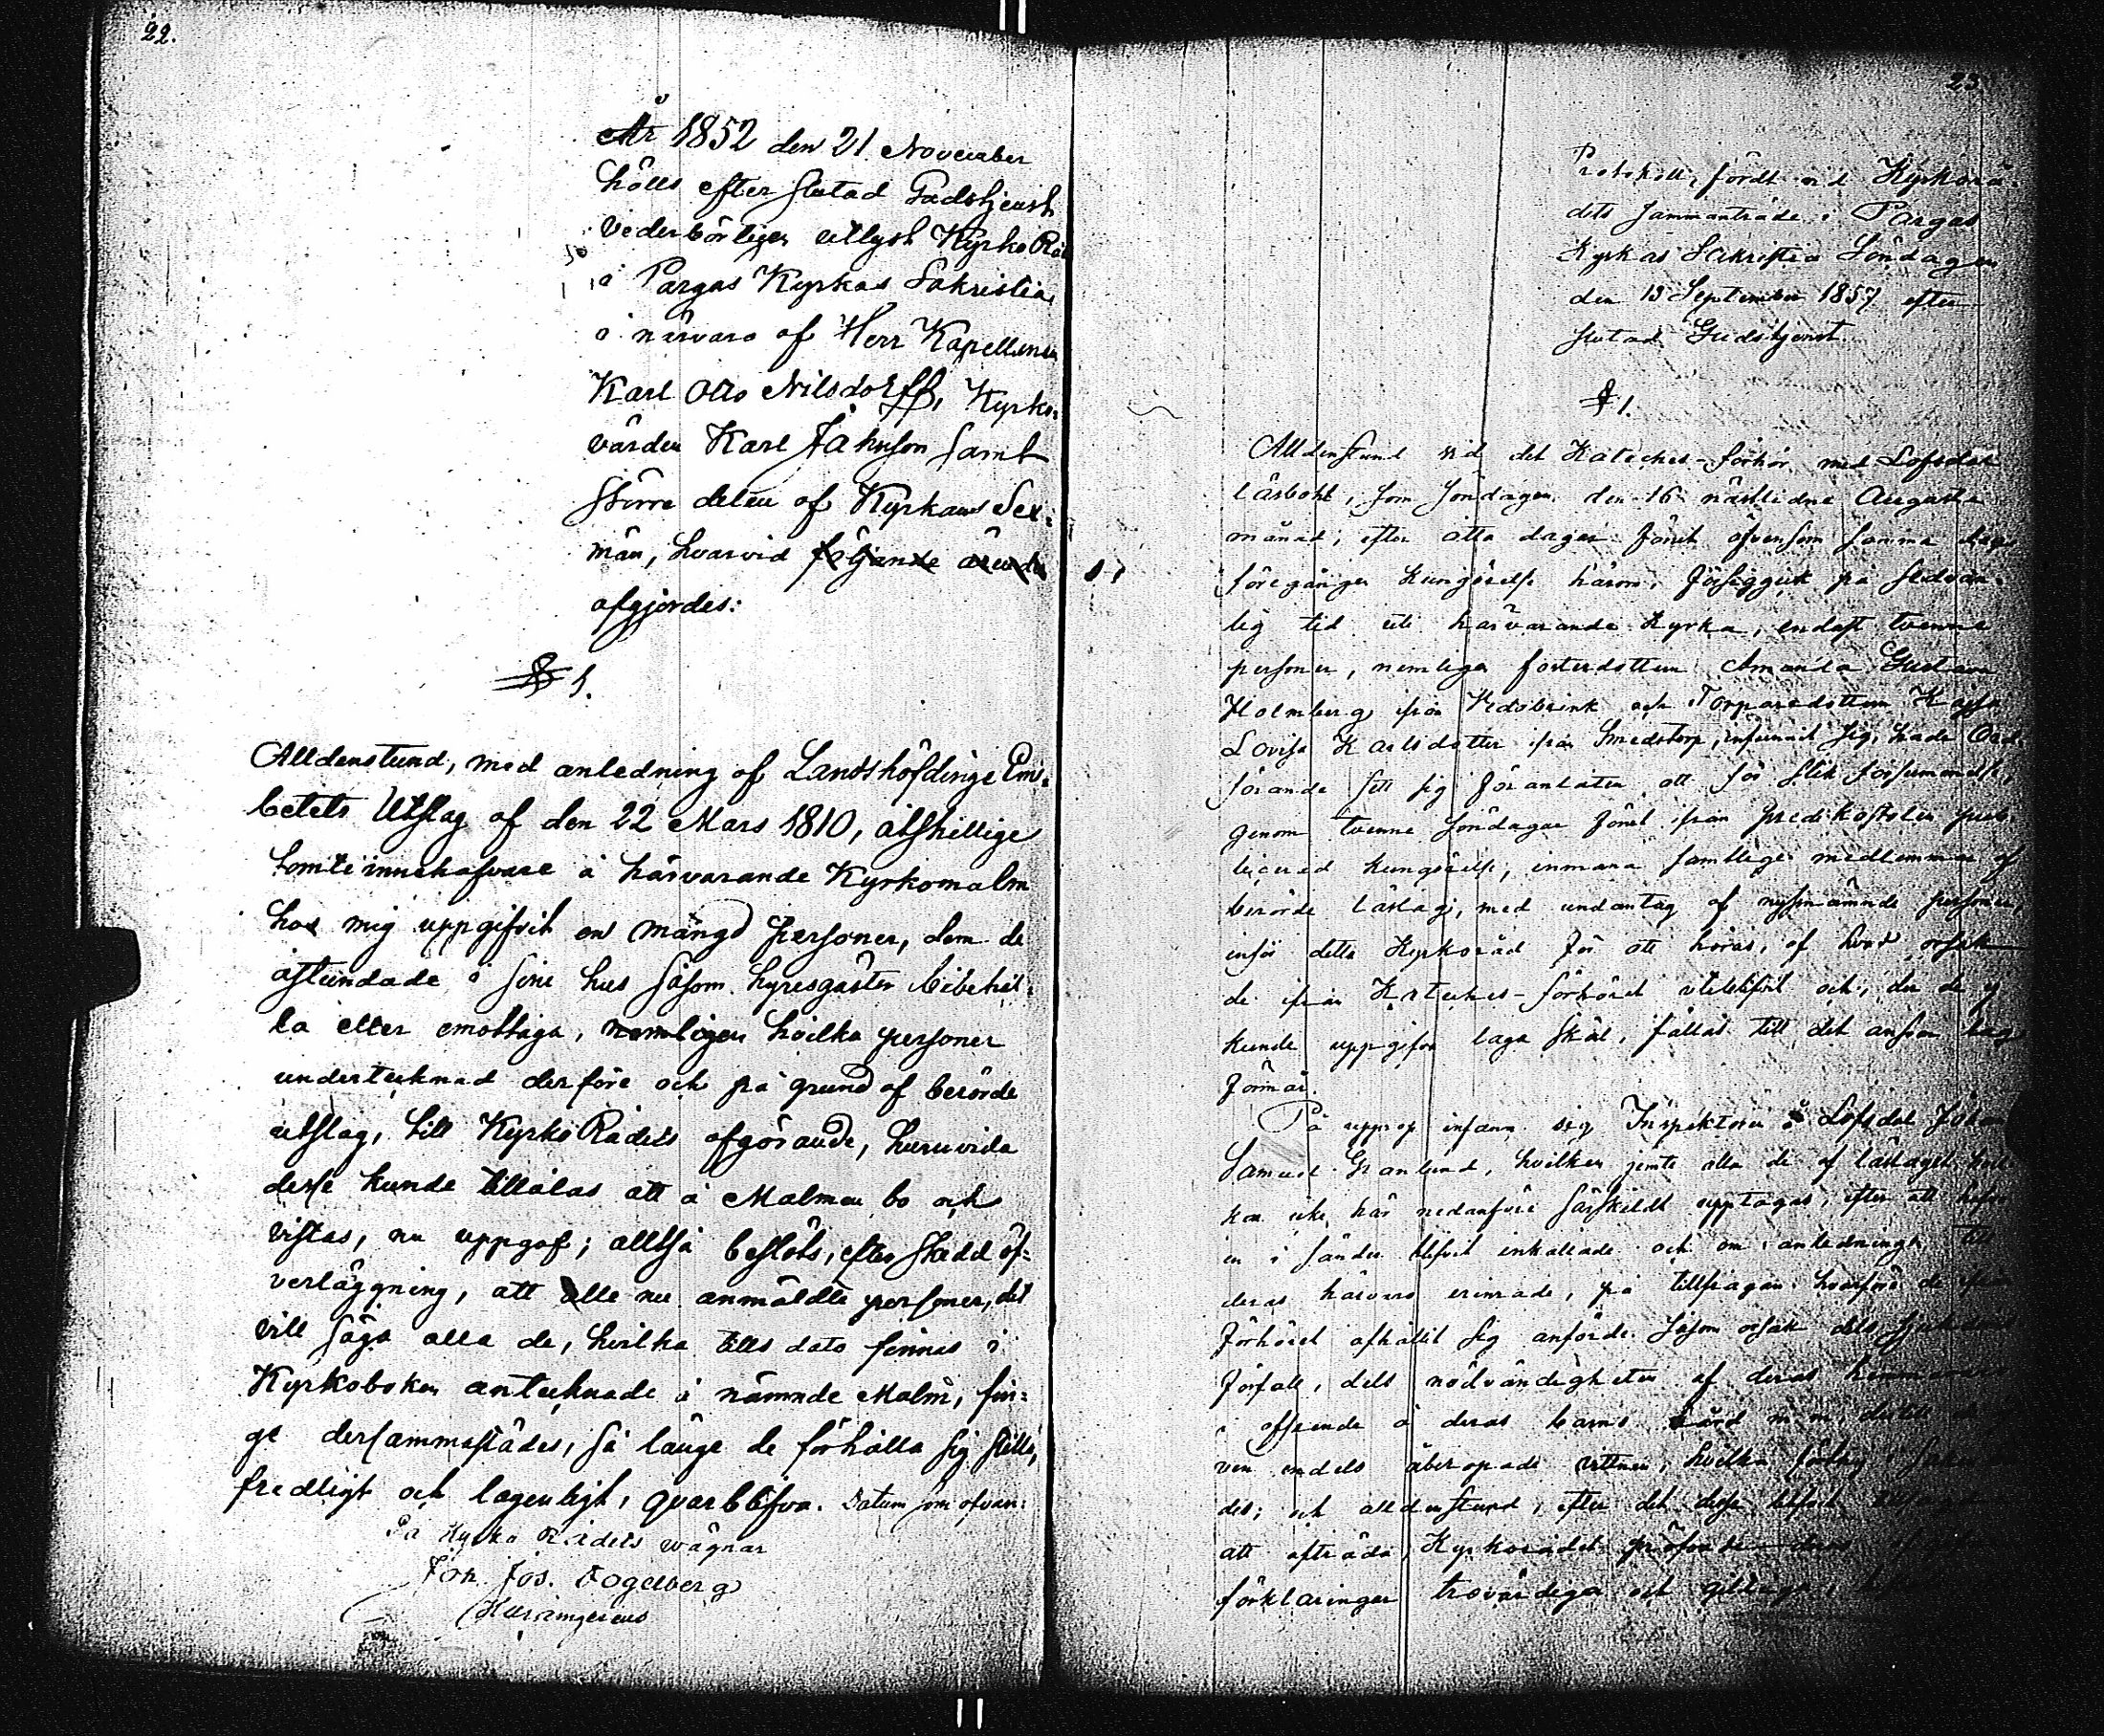 22.
År 1852 den 21 November
hölls efter slutad Gudstjenst
vederbörligen utlyst Kyrko Råd
i Pargas Kyrkas Sakristia
i närvaro af Herr Kapellanen
Karl Otto Nilsdorff, Kyrko-
värden Karl Jahnson samt
större delen af Kyrkans Sex-
män, hvarvid följande ärenden
afgjordes:
§ 1.
Alldenstund, med anledning af Landshöfdinge Em-
betets Utslag af den 22 Mars 1810, åtskillige
tomteinnehafvare å härvarande Kyrkomalm
hos mig uppgifvit en mängd personer, dem de
åstundade i sine hus såsom hyresgäster bibehål-
la eller emottaga, nemligen hvilka personer
undertecknad derföre och på grund af berörde
utslag, till Kyrko Rådets afgörande, huruvida
desse kunde tillåtas att å Malmen bo och
vistas, nu uppgaf; alltså beslöts, efter skedd öf-
verläggning, att alle nu anmäldte personer, det
vill säga alla de, hvilka tills dato finnas i
Kyrkoboken antecknade å nämnde Malm, fin-
ge dersammastädes, så länge de förhålla sig stilla,
fredligt och lagenligt, qvarblifva. Datum som ofvan:
På Kyrko Rådets vägnar
Joh. Jos. Fogelberg
23.
Protokoll, fördt vid Kyrkorå-
dets sammanträde i Pargas
Kyrkas Sakristia Söndagen
den 13 September 1857 efter
slutad Gudstjenst.
§ 1.
Alldenstund vid det Kateches-förhör med Lofsdal
läsbohl, som söndagen den 16 nästlidne Augusti
månad, efter åtta dagar förut äfvensom samma dag
föregången kungörelse härom, försiggick på sedvan-
lig tid uti härvarande Kyrka, endast tvenne
personer, nemligen fosterdottren Amanda Gustava
Holmberg ifrån Vedobrink och Torparedottren Kajsa
Lovisa Karlsdotter ifrån Smedstorp, infunnit sig, hade Ord-
förande sett sig föranlåten att för slik försummelse,
genom tvenne söndagar förut ifrån predikostolen pub-
licerad kungörelse, inmana samtlige medlemmar af
berörde läslag, med undantag af nyssnämnde personer,
inför detta Kyrkoråd för att höras, af hvad orsak
de ifrån Kateches-förhöret uteblifvit och, der de ej
kunde uppgifva laga skäl, fällas till det ansvar lag
förmår.
På upprop infann sig Inspektoren å Lofsdal Johan
Samuel Granlund, hvilken jemte alla de af läslaget
ken icke här nedanföre särskildt upptagas, efter att hafva
en i sänder blifvit inkallade och om anledningen till
deras härvaro erinrade, på tillfrågan hvarföre de ifrån
förhöret afhållit sig anförde såsom orsak dels sjukdoms
förfall, dels nödvändigheten af deras hemmavaro
i afseende å deras barns vård m.m. dertill de
ven endels åberopade vittnen, hvilka
det; och alldenstund, efter det desse blifvit
att afträda, Kyrkorådet pröfvade deras
förklaringar trovärdiga och giltiga,